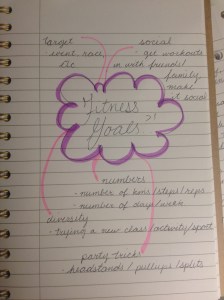 target
- event, race,
etc
social
- get workouts
in with friends/
family,
make
it social
Fitness
Goals?!
numbers
- number of kms/steps/reps
- number of days/week
diversity
- trying a new class/activity/sport
party tricks
- headstands/pullups/splits